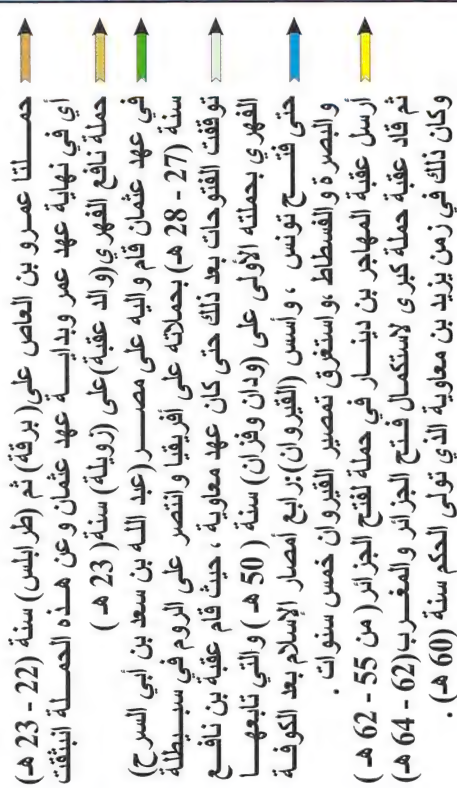 حملتا عمرو بن العاص على (برقة) ثم (طرابلس) سنة (22 - 23 هـ)
أي في نهاية عهد عمر وبداية عهد عثمان وعن هذه الحملة انبثقت
حملة نافع الفهري (والد عقبة) على (زويلة) سنة (23 هـ)
في عهد عثمان قام واليه على مصر (عبد الله بن سعد بن أبي السرح)
سنة (27 - 28 هـ) بحملاته على أفريقيا وانتصر على الروم في سبيطلة
توقفت الفتوحات بعد ذلك حتى كان عهد معاوية ، حيث قام عقبة بن نافع
الفهري بحملته الأولى على (ودان وفزان) سنة (50 هـ) والتي تابعها
حتى فتح تونس ، وأسس (القيروان): رابع أمصار الإسلام بعد الكوفة
والبصرة والفسطاط ،واستغرق تمصير القيروان خمس سنوات .
أرسل عقبة المهاجر بن دينار في حملة لفتح الجزائر (من 55 - 62 هـ)
ثم قاد عقبة حملة كبرى لاستكمال فتح الجزائر والمغرب (62 - 64 هـ)
وكان ذلك في زمن يزيد بن معاوية الذي تولى الحكم سنة (60 هـ) .